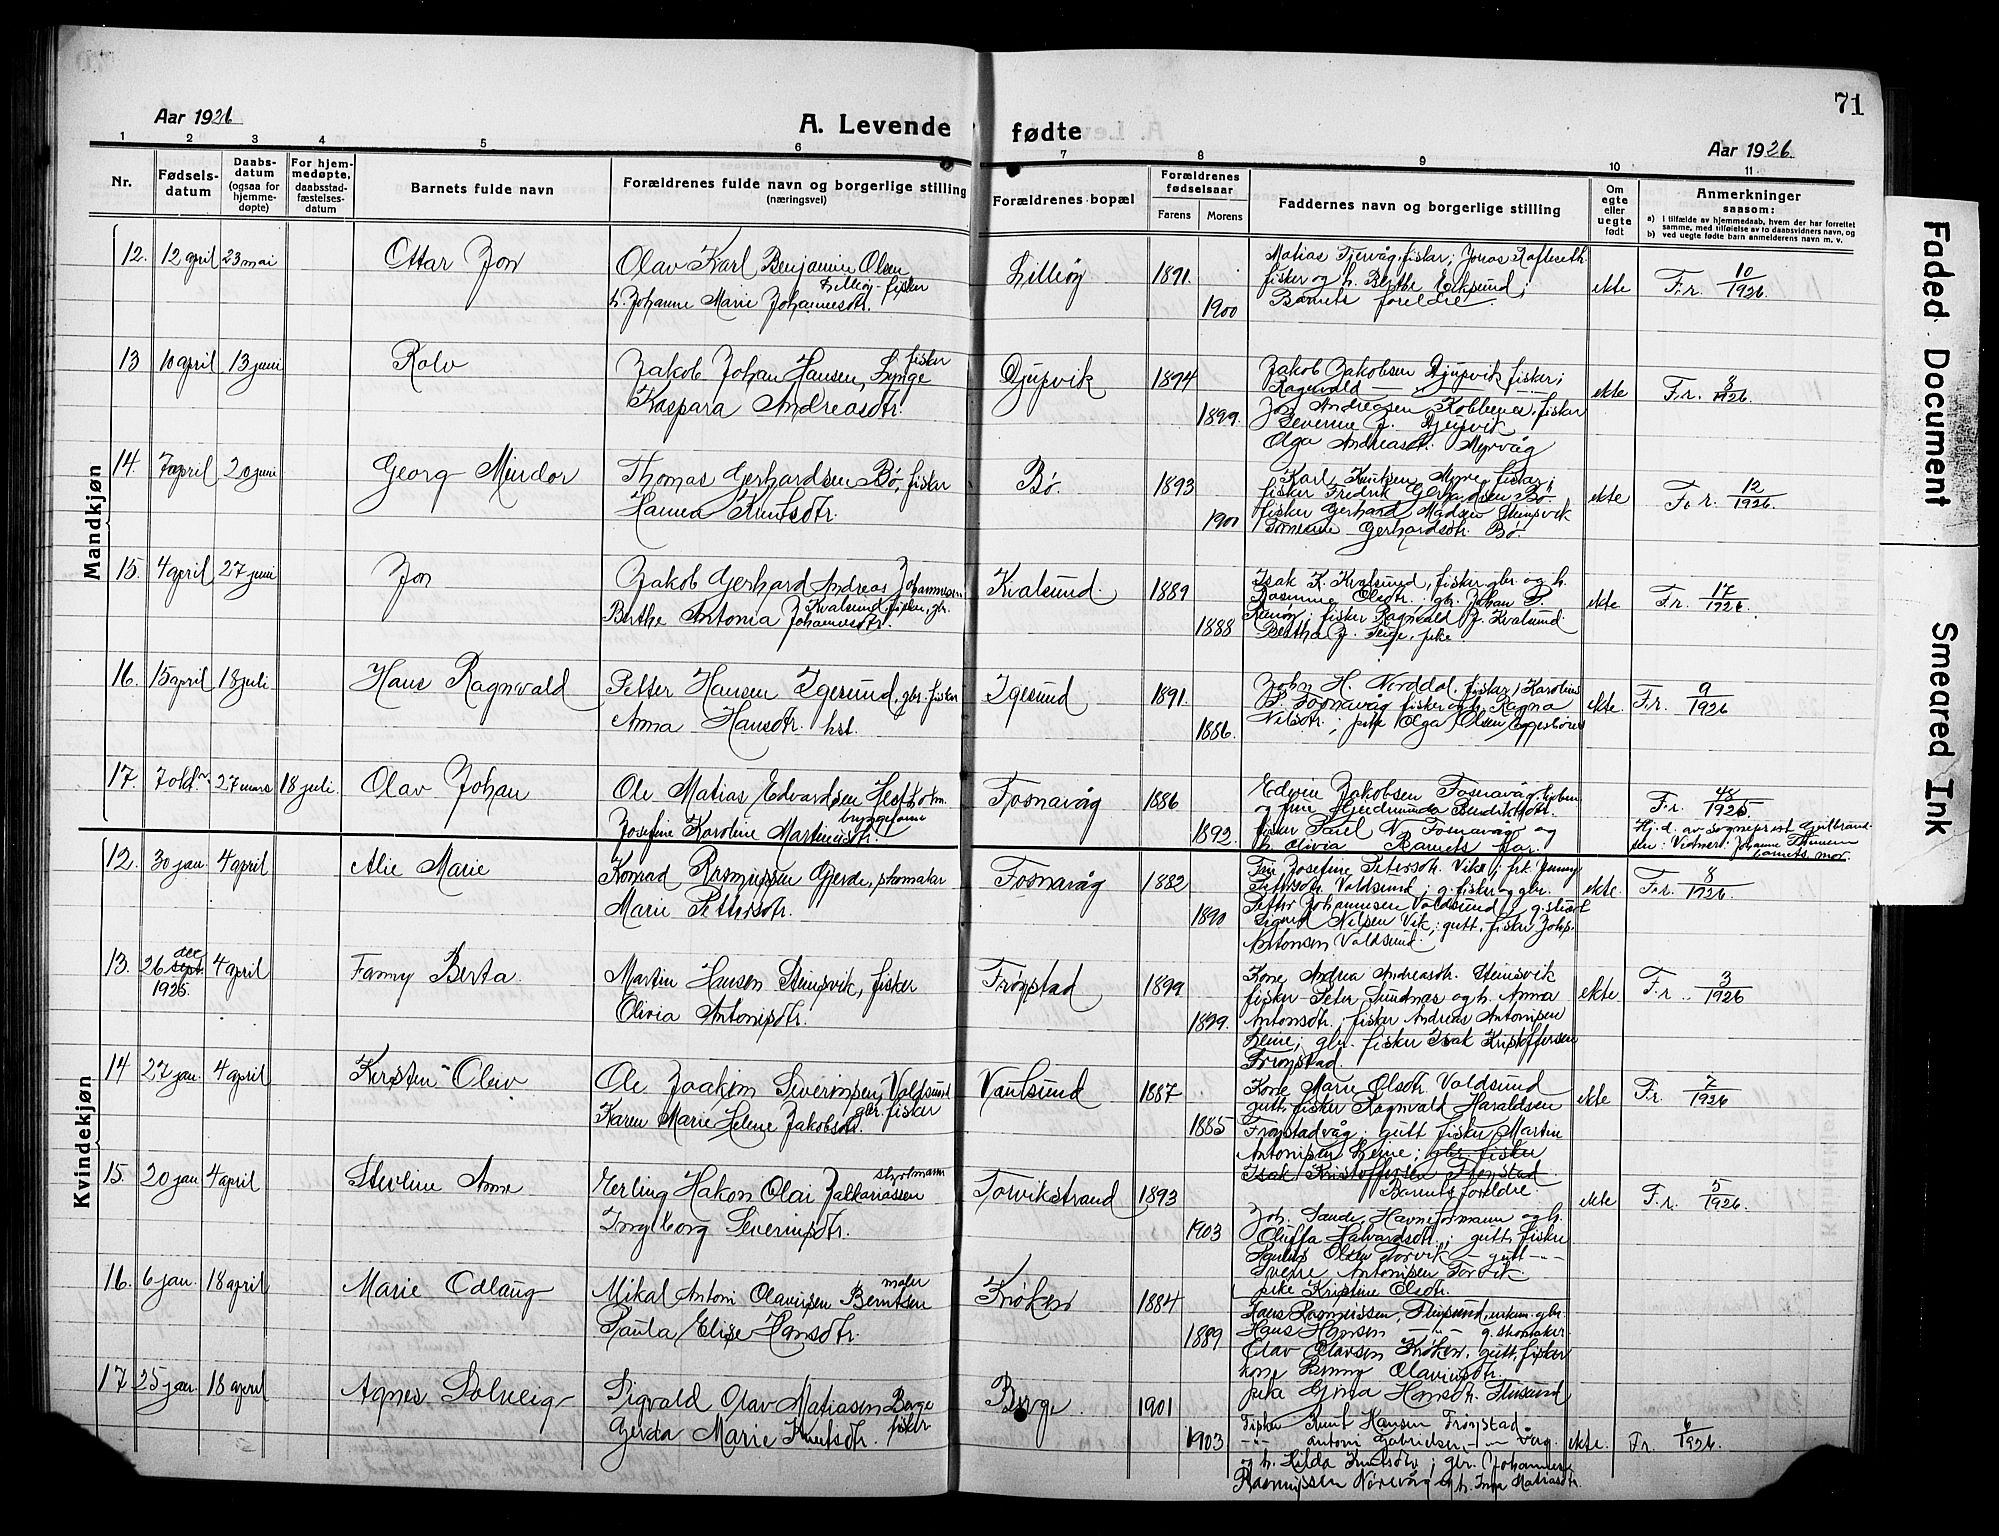 71
Aar 1926
A. Levende fødte
Aar 1926.
1 2 3 4 5 6 7 8 9 10 11
Nr.
Fødsels-
datum
Daabs-
datum
(ogsaa for
hjemme-
døpte)
For hjem-
medøpte,
daabsstad-
fæstelses-
datum
Barnets fulde navn
Forældrenes fulde navn og borgerlige stilling
(næringsvei)
Forældrenes bopæl
Forældrenes
fødselsaar
Farens
Morens
Faddernes navn og borgerlige stilling
Om
egte
eller
uegte
født
Anmerkninger
saasom:
a) I tilfælde av hjemmedaab, hvem der har forrettet
samme, med tilføielse av to daabsvidners navn, og
b) ved uegte fødte barn anmelderens navn m. v.
Mandkjøn
12. 12 april 23 mai
Ottar Jon
Olav Karl Benjamin Olsen
Lilleøy fisker
h. Johanne Marie Johannesdtr.
Lilleøy
1891.
1900
fisker og h. Berthe Eiksund;
Barnets foreldre.
ekte
F.r. 10/1926.
13 10 april 13 juni
Rolv
fisker
Jakob Johan Hansen, Lynge
Kaspara Andreasdtr.
Djupvik
1894
1899.
Jakob Jakobsen Djupvik fisker;
Ragnvald
Jon Andreasen Kobbenes, fisker
Severine J. Djupvik
Olga Andreasdtr. Myrvåg
ekte
F.r. 8/1926.
14. 7 april 20 juni
Georg Mindor
Thomas Gerhardsen Bø, fisker
Hanna Knutsdtr.
Bø.
1893
1901
Karl Knutsen Myre fisker;
fisker Fredrik Gerhardsen Bø.
fisker Gerhard Madsen Steinsvik
Gerhardsdtr. Bø.
ekte
F. r. 12/1926.
15. 4 april 27 juni
Jon
Jakob Gerhard Andreas Johannesen
Kvalsund, fisker, gbr.
Berthe Antonia Johannesdtr.
Kvalsund.
1889
1888
Isak K. Kvalsund, fisker gbr og h.
Rasmine Olsdtr. gbr. Johan P.
Remøy; fisker Ragnvald J. Kvalsund.
Bertha J. Teige, pike
ekte
F.r. 17/1926.
16. 15 april 18 juli
Hans Ragnvald
Petter Hansen Igesund, gbr. fisker
Anna Hansdtr. hst.
Igesund
1891.
1886.
John H. Norddal. fisker, Karolius
B. Fosnavåg fisker og h. Ragna
Nilsdtr.; pike Olga Olsen Eggesbønes
ekte.
F.r. 9/1926
17. 7 okt 27 mars 18 juli.
Olav Johan
Ole Matias Edvardsen Hestholm.
Josefine Karoline Martinusdtr.
Fosnavåg
1886
1892.
Edvin Jakobsen Fosnavåg,
og frue Gjertrunda Bendiktsdtr.
fisker Parel N. Fosnavåg og
h. Olivia Barnets far.
F.r. 48/1925.
Hj.d. av sogneprest Gulbrand-
sen: Vidner: Johanne
barnets mor.
Kvindekjøn
12. 30 jan. 4 april
Alie Marie
Konrad Rasmussen Gjerde, skomaker
Marie Pettersdtr.
Fosnavåg
1882
1890
Frk. Josefine Petersdtr. Vike; frk. Jenny
Petersdtr. Voldsund; g. fisker og gbr.
Petter Johannesen Voldsund;
Sigurd Nilsen Vik; gutt, fisker Johs.
Antonsen Voldsund.
ekte.
F.r. 8/1926.
13. 26 dec sept. 1925 4 april
Fanny Berta.
Martin Hansen Steinsvik, fisker
Olivia Antonisdtr.
Frøystad
1899
1899.
Kone Andrea Andreasdtr. Steinsvik
fisker Peter Sundnes og h. Anna
Antonsdtr.; fisker Andreas Antonisen
Leine; gbr. fisker Isak Kristoffersen
Frøystad.
ekte
F.r. 3/1926
14 27 jan. 4 april
Kirsten Oleiv
Ole Joakim Severinsen, Voldsund
gbr. fisker
Karen Marie Helene Jakobsdtr.
Vaulsund
1887
1885
Kone Marie Olsdtr. Voldsund
gutt, fisker Ragnvald Haraldsen
Frøystadvåg; gutt fisker, Martin
Antonisen Leine; gbr. fisker
Isak Kristoffersen Frøystad
Barnets foreldre.
ekte
F.r. 7/1926
15. 20 jan 4 april
Steviline Anne
styrmann
Erling Hakon Olai Zakkariassen
Ingeborg Severinsdtr.
Torvikstrand
1893
1903
Joh. Sande, Havneformann og h.
Oluffa Halvardsdtr.; gutt, fisker
Paulus Olsen Torvik — gutt
Sverre Antonisen Torvik.
pike Kristine Olsdtr.
ekte
F.r. 5/1926.
16. 6 jan. 18 april
Marie Odlaug
maler
Mikal Antoni Olavussen Berntsen
Paula Elise Hansdtr.
Krøken
1884
1889
Hans Rasmussen, enkem. gbr.
Hans Hansen — g. skomaker.
Olav Olavsen Krøken, gutt, fisker
kone Olaviusdtr.
pike Gjina Hansdtr.
17 25 jan 18 april
Agnes Solveig
Sigvald Olav Matiasen Berge
fisker
Gerda Marie Knutsdtr.
Berge
1901
1903
Fisker Knut Hansen Frøystad
Antoni Gabrielsen Våg.
og h. Hilda Knutsdtr; gbr. Johannes
Rasmussen Nørevåg og h. Inga Matiasdtr.
ekte.
Fr. 6/1926.
Faded Document
Smeared Ink